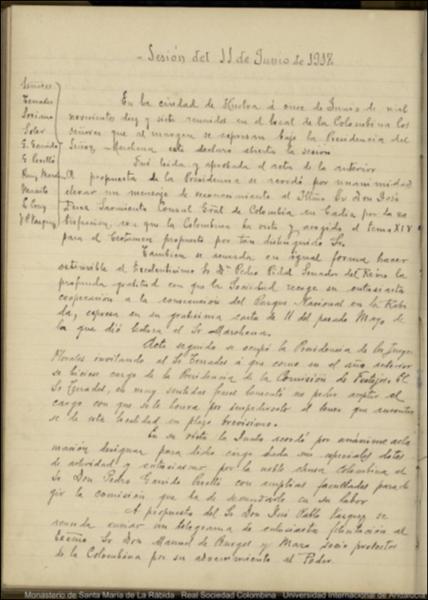 Sesión del 11 de Junio de 1917.
Señores
Terrades
Soriano
Soler
G. Garrido
G. Perelló
Ruiz Marchena
Morcito
En la ciudad de Huelva á once de Junio de mil
novecientos diez y siete reunidos en el local de la Colombina los
señores que al margen se expresan bajo la Presidencia del
Señor Marchena este declaró abierta la sesión.
Fué leida y aprobada el acta de la anterior.
A propuesta de la Presidencia se acordó por unanimidad
elevar un mensaje de reconocimiento al Iltmo Sr Don José
Sarmiento Consul Gral de Colombia en Cadiz por la
que la Colombina ha visto y acogido el tema XIV
para el Certamen propuesto por tan distinguido Sr.
Tambien se acuerda en igual forma hacer
ostensible al Excelentísimo Sr Dn Pedro Pidal Senador del Reino la
profunda gratitud con que la Sociedad recoge su entusiasta
cooperación a la consecución del Parque Nacional en la Rabi-
da, expresa en su gratisima carta de 11 del pasado Mayo de
la que dió lectura el Sr Marchena.
Acto seguido se ocupó la Presidencia de los Juegos
Florales invitando al Sr Terrades á que como en el año anterior
se hiciese cargo de la Presidencia de la Comisión de Festejos. El
Sr Terrades, en muy sentidas frases lamentó no poder aceptar el
cargo con que se le honra por impedirselo el tener que ausentar
se de esta localidad en plazo brevisimo.
En su vista la Junta acordó por unánime acla
mación designar para dicho cargo dadas sus especiales dotes
de actividad y entusiasmo por la noble idea Colombina al
Sr Don Pedro Garrido Perelló con amplias facultades para de
gir la comisión que ha de secundarle en su labor.
A propuesta del Sr Don José Pablo Vazquez se
acuerda enviar un telegrama de entusiasta felicitación al
Excmo Sr Don Manuel de Burgos y Mazo socio protector
de la Colombina por su advenimiento al Poder.
Monasterio de Santa María de La Rábida · Real Sociedad Colombina · Universidad Internacional de Andalucía